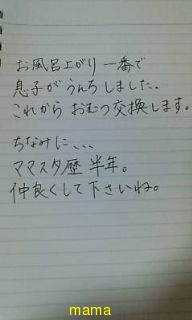 お風呂上がり一番で
息子がうんちしました。
これから おむつ交換します。
ちなみに、、、
ママスタ歴 半年。
仲良くして下さいね。
mama